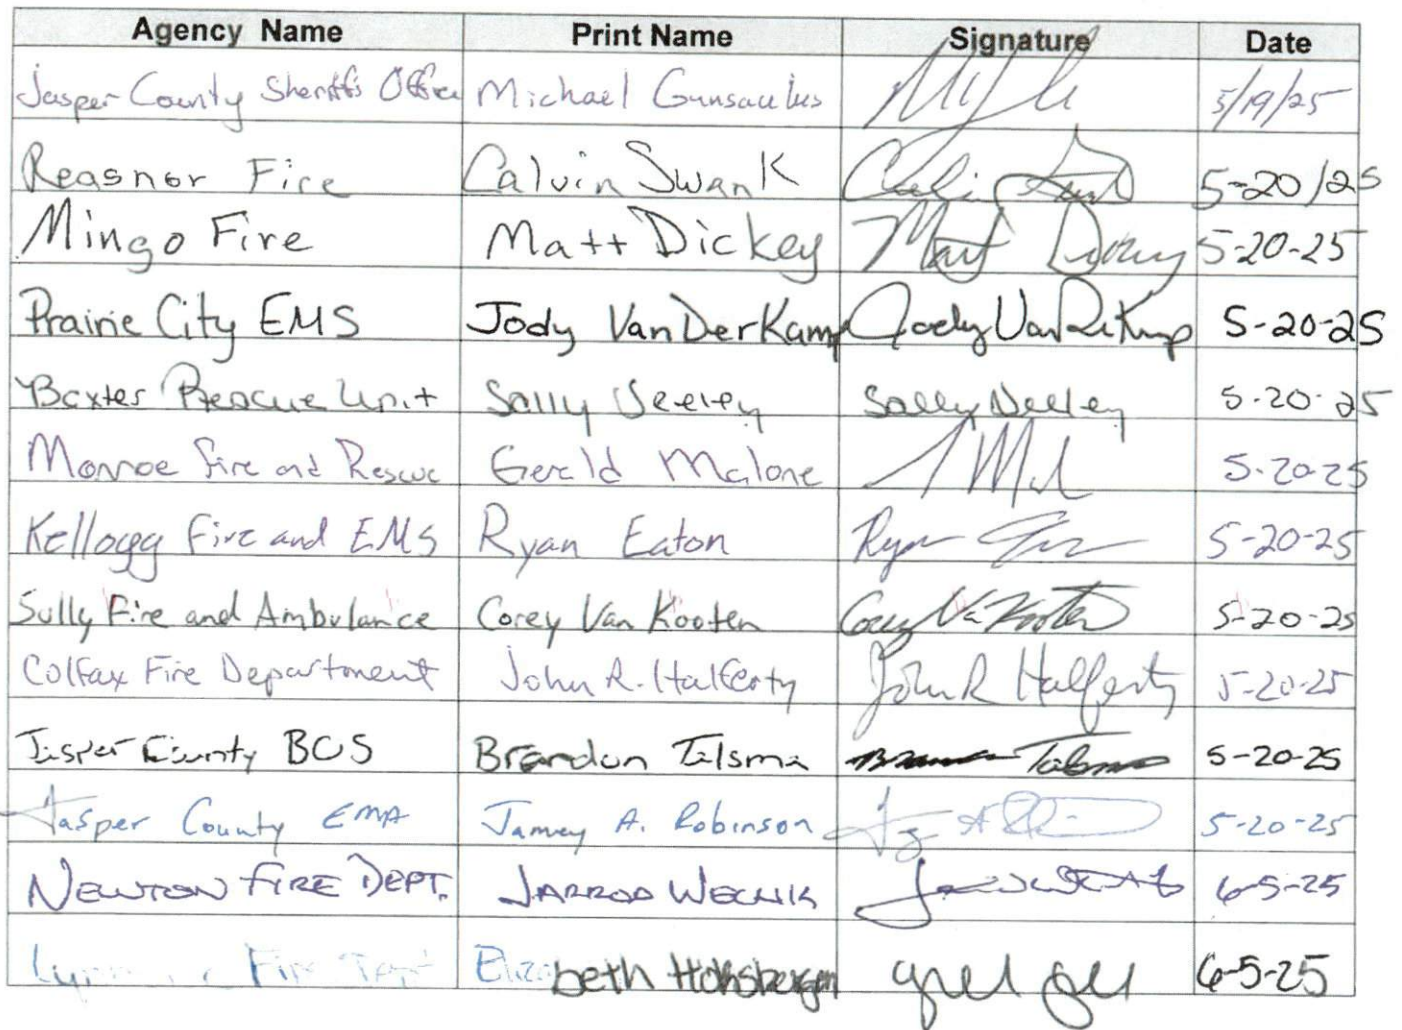 Agency Name Print Name Signature Date
Jasper County Sheriff's Office Michael Gunsaulus 5/19/25
Reasnor Fire Calvin Swank 5-20/25
Mingo Fire Matt Dickey Matt Dickey 5-20-25
Prairie City EMS Jody VanDerKamp Jody VanDerKamp 5-20-25
Baxter Rescue Unit Sally Neeley 5-20-25
Monroe Fire and Rescue Gerald Malone 5-20-25
Kellogg Fire and EMS Ryan Eaton Ryan 5-20-25
Sully Fire and Ambulance Corey Van Kooten Corey Van Kooten 5-20-25
Colfax Fire Department John R. Halferty John R Halferty 5-20-25
Jasper County BOS Brandon Talsma Talsma 5-20-25
Jasper County EMA Jamey A. Robinson 5-20-25
NEWTON FIRE DEPT. JARROD 6-5-25
Fire Elizabeth 6-5-25